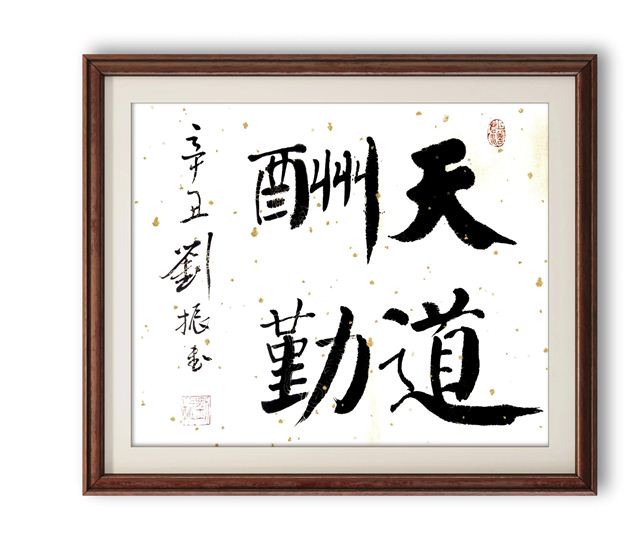 天道
酬勤
辛丑劉振書